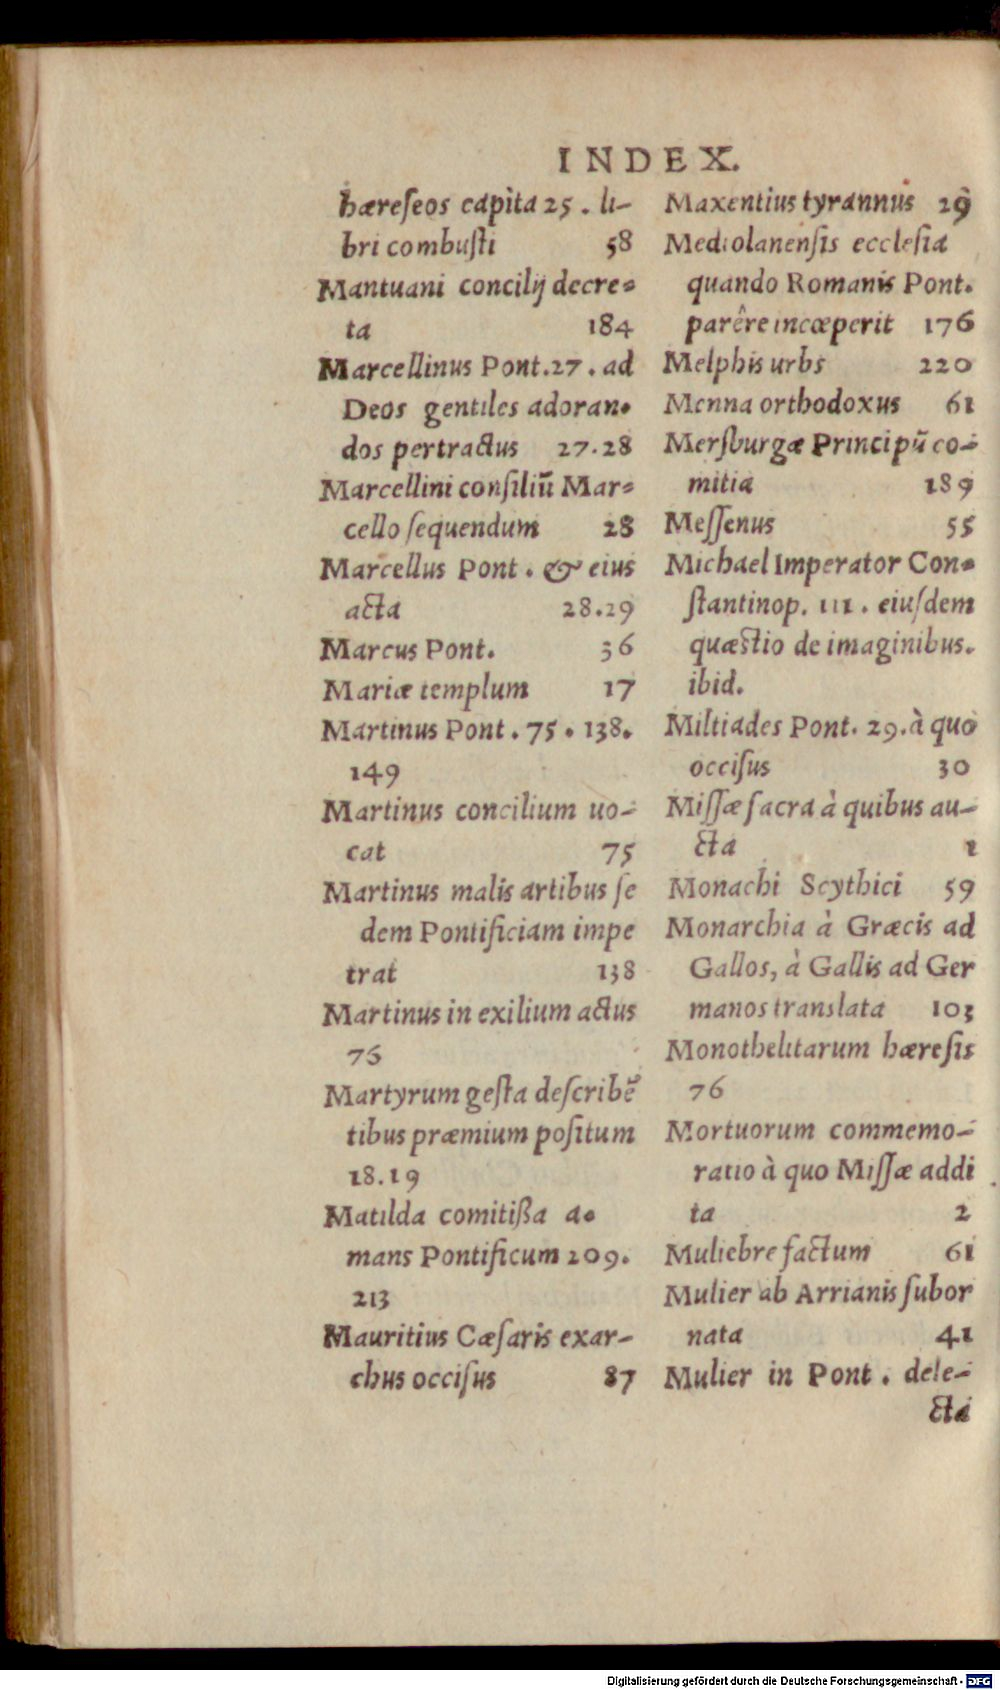 INDEX.
hæreſeos capìta 25 . li-
bri combuſti 58
Mantuani concilij decre-
ta 184
Marcellinus Pont.27 . ad
Deos gentiles adoran-
dos pertractus 27.28
Marcellini conſiliũ Mar-
cello ſequendum 28
Marcellus Pont . & eius
acta 28.29
Marcus Pont. 36
Mariæ templum 17
Martinus Pont . 75 . 138.
149
Martinus concilium uo-
cat 75
Martinus malis artibus ſe
dem Pontificiam impe
trat 138
Martinus in exilium actus
76
Martyrum geſta deſcribẽ
tibus præmium poſitum
18.19
Matilda comitißa a-
mans Pontificum 209.
213
Mauritius Cæſaris exar-
chus occiſus 87
Maxentius tyrannus 29
Mediolanenſis eccleſia
quando Romanis Pont.
parêre incœperit 176
Melphis urbs 220
Menna orthodoxus 61
Merſburgæ Principũ co-
mitia 189
Meſſenus 55
Michael Imperator Con-
ſtantinop. 111 . eiuſdem
quæstio de imaginibus.
ibid.
Miltiades Pont. 29.à quo
occiſus 30
Miſſæ ſacra à quibus au-
cta 1
Monachi Scythici 59
Monarchia à Græcis ad
Gallos, à Gallis ad Ger
manos translata 103
Monothelitarum hæreſis
76
Mortuorum commemo-
ratio à quo Miſſæ addi
ta 2
Muliebre factum 61
Mulier ab Arrianis ſubor
nata 41
Mulier in Pont . dele-
cta
Digitalisierung gefördert durch die Deutsche Forschungsgemeinschaft - DFG